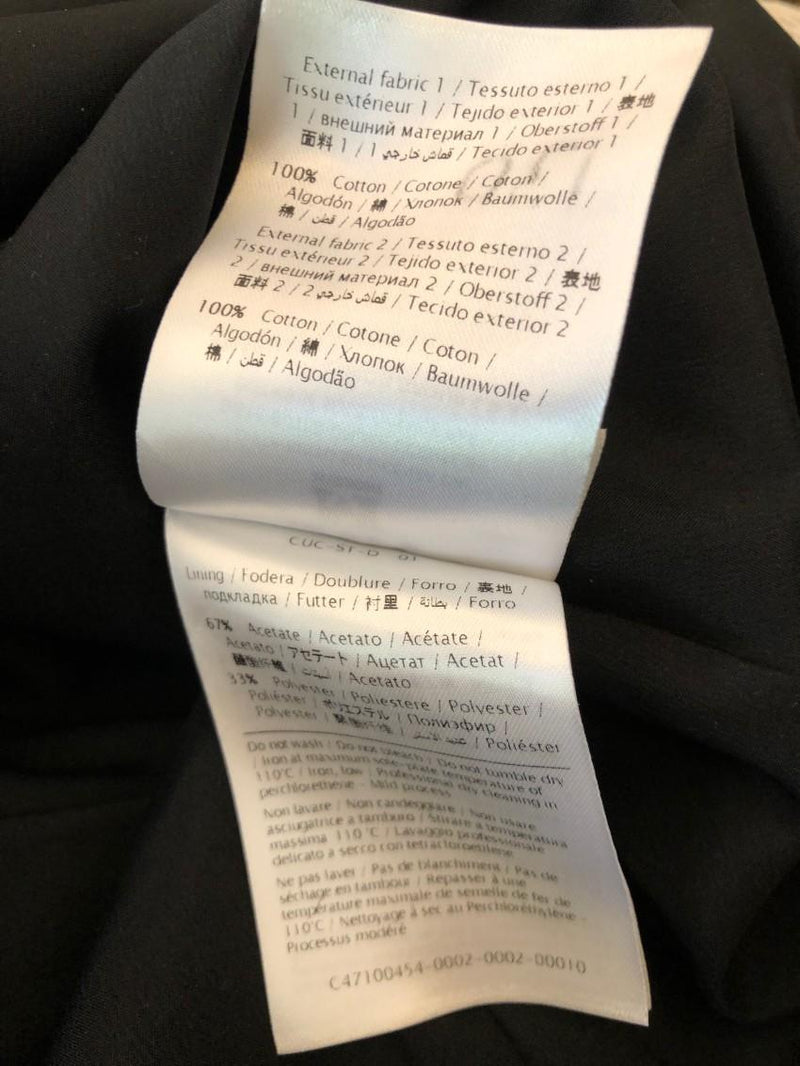 External fabric 1 / Tessuto esterno 1 /
Tissu extérieur 1 / Tejido exterior 1 / 表地
1 / внешний материал 1 / Oberstoff 1 /
面料 1 / قماش خارجي 1 / Tecido exterior 1
100% Cotton / Cotone / Coton /
Algodón / 綿 / Хлопок / Baumwolle /
棉 / قطن / Algodão
External fabric 2 / Tessuto esterno 2 /
Tissu extérieur 2 / Tejido exterior 2 / 表地
2 / внешний материал 2 / Oberstoff 2 /
面料 2 / قماش خارجي 2 / Tecido exterior 2
100% Cotton / Cotone / Coton /
Algodón / 綿 / Хлопок / Baumwolle /
棉 / قطن / Algodão
CUC-ST-D 01
Lining / Fodera / Doublure / Forro / 裏地 /
подкладка / Futter / 衬里 / بطانة / Forro
67% Acetate / Acetato / Acétate /
Acetato / アセテート / Ацетат / Acetat /
/ Acetato
33% Polyester / Poliestere / Polyester /
Poliéster / ポリエステル / Полиэфир /
Polyester / / Poliéster
Do not wash / Do not bleach / Do not tumble dry
/ Iron at maximum sole-plate temperature of
110°C / Iron, low / Professional dry cleaning in
perchlorethene - Mild process
Non lavare / Non candeggiare / Non usare
asciugatrice a tamburo / Stirare a temperatura
massima 110°C / Lavaggio professionale
delicato a secco con tetracloroetilene
Ne pas laver / Pas de blanchiment / Pas de
séchage en tambour / Repasser à une
température maximale de semelle de fer de
110°C / Nettoyage à sec au Perchloréthylène -
Processus modéré
C47100454-0002-0002-00010